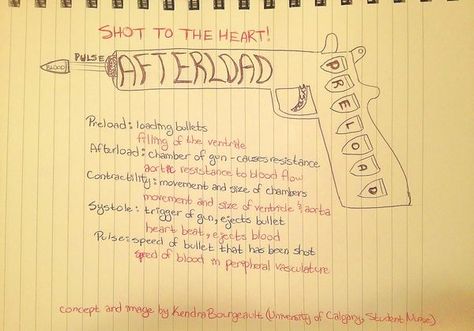 SHOT TO THE HEART!
BLOOD
PULSE
AFTERLOAD
PRELOAD
Preload: loading bullets
filling of the ventricle
Afterload: chamber of gun - causes resistance
aortic resistance to blood flow
Contractility: movement and size of chambers
movement and size of ventricle & aorta
Systole: trigger of gun, ejects bullet
heart beat, ejects blood
Pulse: speed of bullet that has been shot
speed of blood in peripheral vasculature
concept and image by Kendra Bourgeault (University of Calgary, Student Nurse)